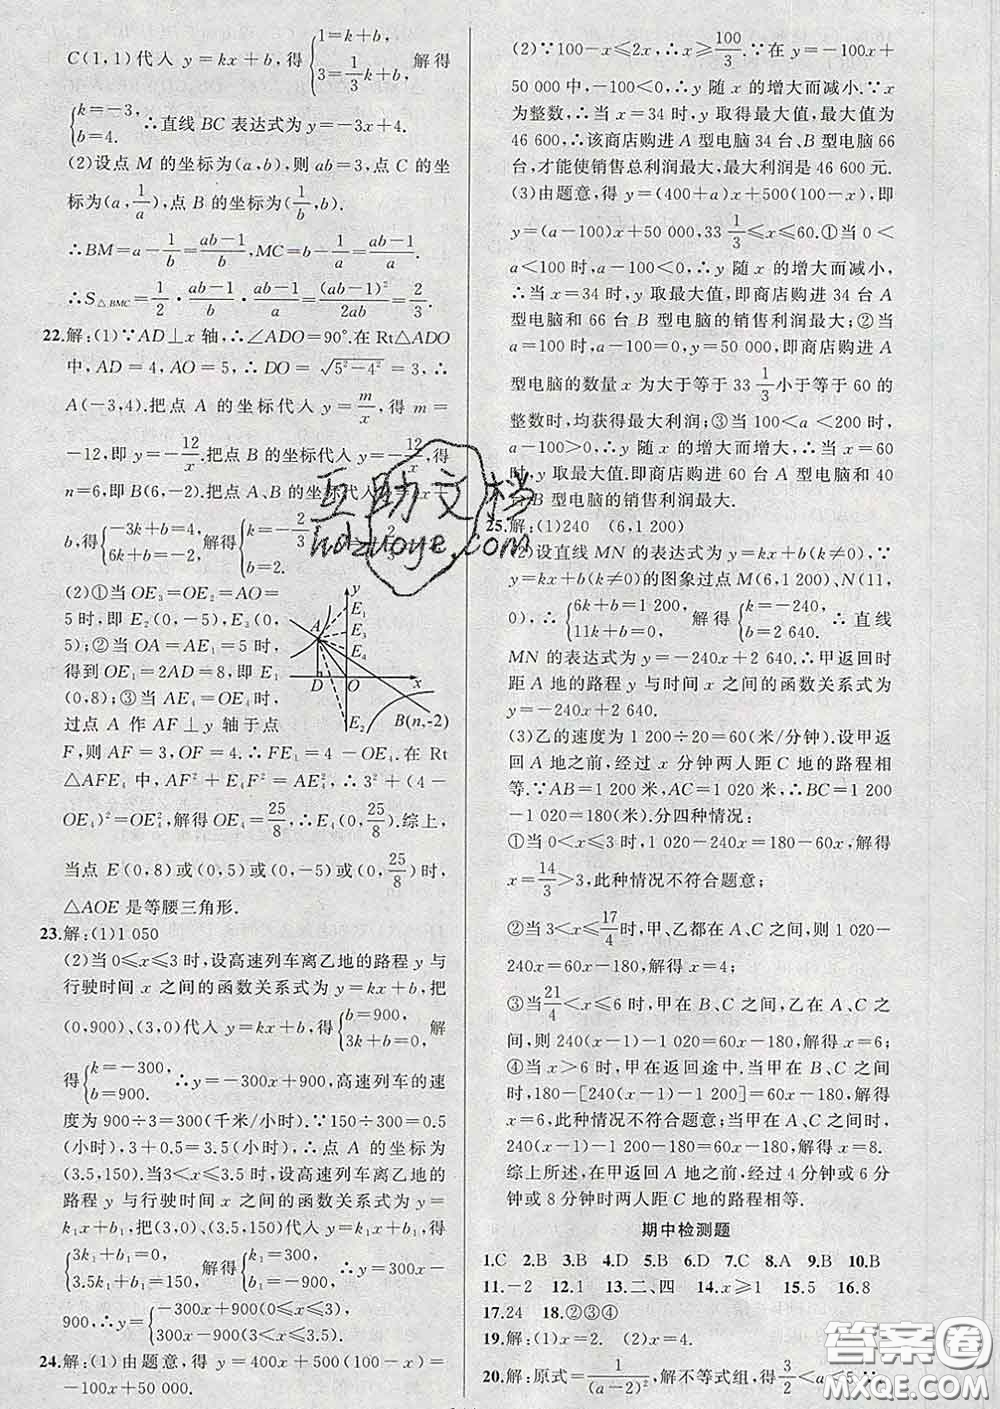 C(1,1)代入 y=kx+b,得{1=k+b, 3=1/3k+b, 解得
{k=-3, b=4. ∴直线 BC 表达式为 y=-3x+4.
(2)设点 M 的坐标为(a,b),则 ab=3,点 C 的坐
标为(a,1/a),点 B 的坐标为(1/b,b).
∴BM=a-1/b=(ab-1)/b,MC=b-1/a=(ab-1)/a.
∴S△BMC=1/2·(ab-1)/b·(ab-1)/a=(ab-1)²/2ab=2/3.
22.解:(1)∵AD⊥x 轴,∴∠ADO=90°.在 Rt△ADO
中,AD=4,AO=5,∴DO=√(5²-4²)=3,∴
A(-3,4).把点 A 的坐标代入 y=m/x,得 m=
-12,即 y=-12/x.把点 B 的坐标代入 y=-12/x,得
n=6,即 B(6,-2).把点 A、B 的坐标代入 y=kx+
b,得{-3k+b=4, 6k+b=-2. 解得{k=-2/3, b=2.
(2)①当 OE₃=OE₂=AO=
5 时,即 E₂(0,-5),E₃(0,
5);②当 OA=AE₁=5 时,
得到 OE₁=2AD=8,即 E₁
(0,8);③当 AE₄=OE₄ 时,
过点 A 作 AF⊥y 轴于点
F,则 AF=3,OF=4.∴FE₄=4-OE₄.在 Rt
△AFE₄ 中,AF²+E₄F²=AE₄²,∴3²+(4-
OE₄)²=OE₄²,解得 OE₄=25/8,∴E₄(0,25/8).综上,
当点 E(0,8)或(0,5)或(0,-5)或(0,25/8)时,
△AOE 是等腰三角形.
y
E₁
A
E₃
E₄
D
O
x
E₂
B(n,-2)
23.解:(1)1 050
(2)当 0≤x≤3 时,设高速列车离乙地的路程 y 与
行驶时间 x 之间的函数关系式为 y=kx+b,把
(0,900)、(3,0)代入 y=kx+b,得{b=900, 3k+b=0, 解
得{k=-300, b=900. ∴y=-300x+900,高速列车的速
度为 900÷3=300(千米/小时).∵150÷300=0.5
(小时),3+0.5=3.5(小时),∴点 A 的坐标为
(3.5,150).当3<x≤3.5 时,设高速列车离乙地的
路程 y 与行驶时间 x 之间的函数关系式为 y=
k₁x+b₁,把(3,0)、(3.5,150)代入 y=k₁x+b₁,得
{3k₁+b₁=0, 3.5k₁+b₁=150, 解得{k₁=300, b₁=-900, ∴y=300x-
900,∴y={-300x+900(0≤x≤3), 300x-900(3<x≤3.5).
24.解:(1)由题意,得 y=400x+500(100-x)=
-100x+50 000.
(2)∵100-x≤2x,∴x≥100/3.∵在 y=-100x+
50 000 中,-100<0,∴y 随 x 的增大而减小.∵x
为整数,∴当 x=34 时,y 取得最大值,最大值为
46 600,∴该商店购进 A 型电脑 34 台、B 型电脑 66
台,才能使销售总利润最大,最大利润是 46 600 元.
(3)由题意,得 y=(400+a)x+500(100-x),即
y=(a-100)x+50 000,33 1/3≤x≤60.①当 0<
a<100 时,a-100<0,∴y 随 x 的增大而减小,
∴当 x=34 时,y 取最大值,即商店购进 34 台 A
型电脑和 66 台 B 型电脑的销售利润最大;②当
a=100 时,a-100=0,y=50 000,即商店购进 A
型电脑的数量 x 为大于等于 33 1/3 小于等于 60 的
整数时,均获得最大利润;③当 100<a<200 时,
a-100>0,∴y 随 x 的增大而增大,∴当 x=60
时,y 取最大值.即商店购进 60 台 A 型电脑和 40
台 B 型电脑的销售利润最大.
25.解:(1)240 (6,1 200)
(2)设直线 MN 的表达式为 y=kx+b(k≠0),∵
y=kx+b(k≠0)的图象过点 M(6,1 200)、N(11,
0),∴{6k+b=1 200, 11k+b=0, 解得{k=-240, b=2 640. ∴直线
MN 的表达式为 y=-240x+2 640.∴甲返回时
距 A 地的路程 y 与时间 x 之间的函数关系式为
y=-240x+2 640.
(3)乙的速度为 1 200÷20=60(米/分钟).设甲返
回 A 地之前,经过 x 分钟两人距 C 地的路程相
等.∵AB=1 200 米,AC=1 020 米,∴BC=1 200
-1 020=180(米).分四种情况:
①当 0<x≤3 时,1 020-240x=180-60x,解得
x=14/3>3,此种情况不符合题意;
②当 3<x≤17/4 时,甲、乙都在 A、C 之间,则 1 020-
240x=60x-180,解得 x=4;
③当 21/4<x≤6 时,甲在 B、C 之间,乙在 A、C 之
间,则 240(x-1)-1 020=60x-180,解得 x=6;
④当 x>6 时,甲在返回途中.当甲在 B、C 之间时,
180-[240(x-1)-1 200]=60x-180,解得
x=6,此种情况不符合题意;当甲在 A、C 之间时,
240(x-1)-1 200-180=60x-180,解得 x=8.
综上所述,在甲返回 A 地之前,经过 4 分钟或 6 分
钟或 8 分钟时两人距 C 地的路程相等.
期中检测题
1.C 2.B 3.B 4.D 5.B 6.D 7.C 8.A 9.B 10.B
11.-2 12.1 13.二、四 14.x≥1 15.5 16.8
17.24 18.②③④
19.解:(1)x=2. (2)x=4.
20.解:原式=1/(a-2)²,解不等式组,得 3/2<a≤5.∵
互助文档
hdzuoye.com
答案圈
MXQE.COM